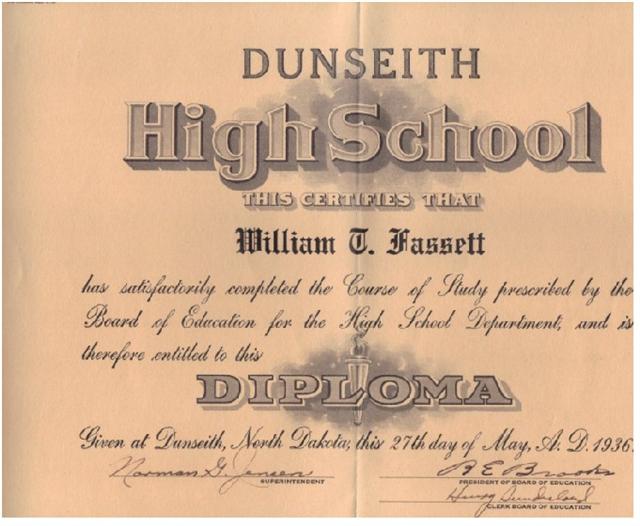 DUNSEITH
High School
THIS CERTIFIES THAT
William T. Fassett
has satisfactorily completed the Course of Study prescribed by the
Board of Education for the High School Department, and is
therefore entitled to this
DIPLOMA
Given at Dunseith, North Dakota, this 27th day of May, A. D. 1936.
Norman G. Jensen
SUPERINTENDENT
B E Brooks
PRESIDENT OF BOARD OF EDUCATION
CLERK BOARD OF EDUCATION